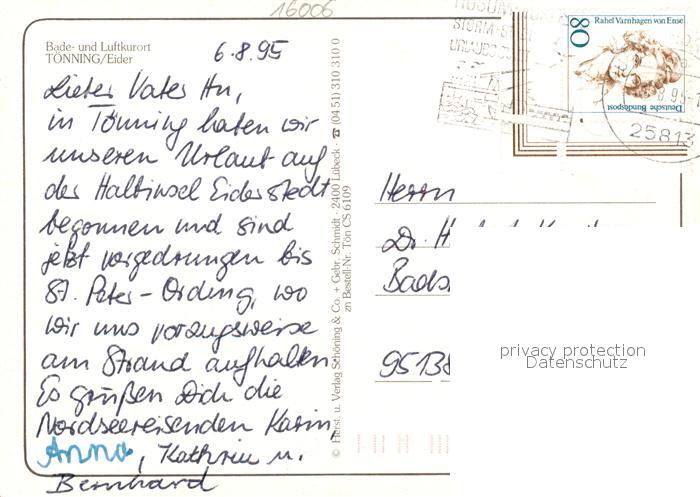 16006
Bade- und Luftkurort
TÖNNING/Eider
6.8.95
Lieber Vater
in Tönning haben wir
unseren Urlaub auf
der Halbinsel Eiderstedt
begonnen und sind
jetzt vorgedrungen bis
St. Peter-Ording, wo
wir uns vorzugsweise
am Strand aufhalten.
Es grüßen Dich die
Nordseereisenden Karin,
Anna, Kathrin u.
Bernhard
© Herst. u. Verlag Schöning & Co. + Gebr. Schmidt · 2400 Lübeck · ☎ (04 51) 310 310 0
zu Bestell-Nr. Tön CS 6109
80
Rahel Varnhagen von Ense
Deutsche Bundespost
25813
Herrn
Dr. H
Bads
95138
privacy protection
Datenschutz